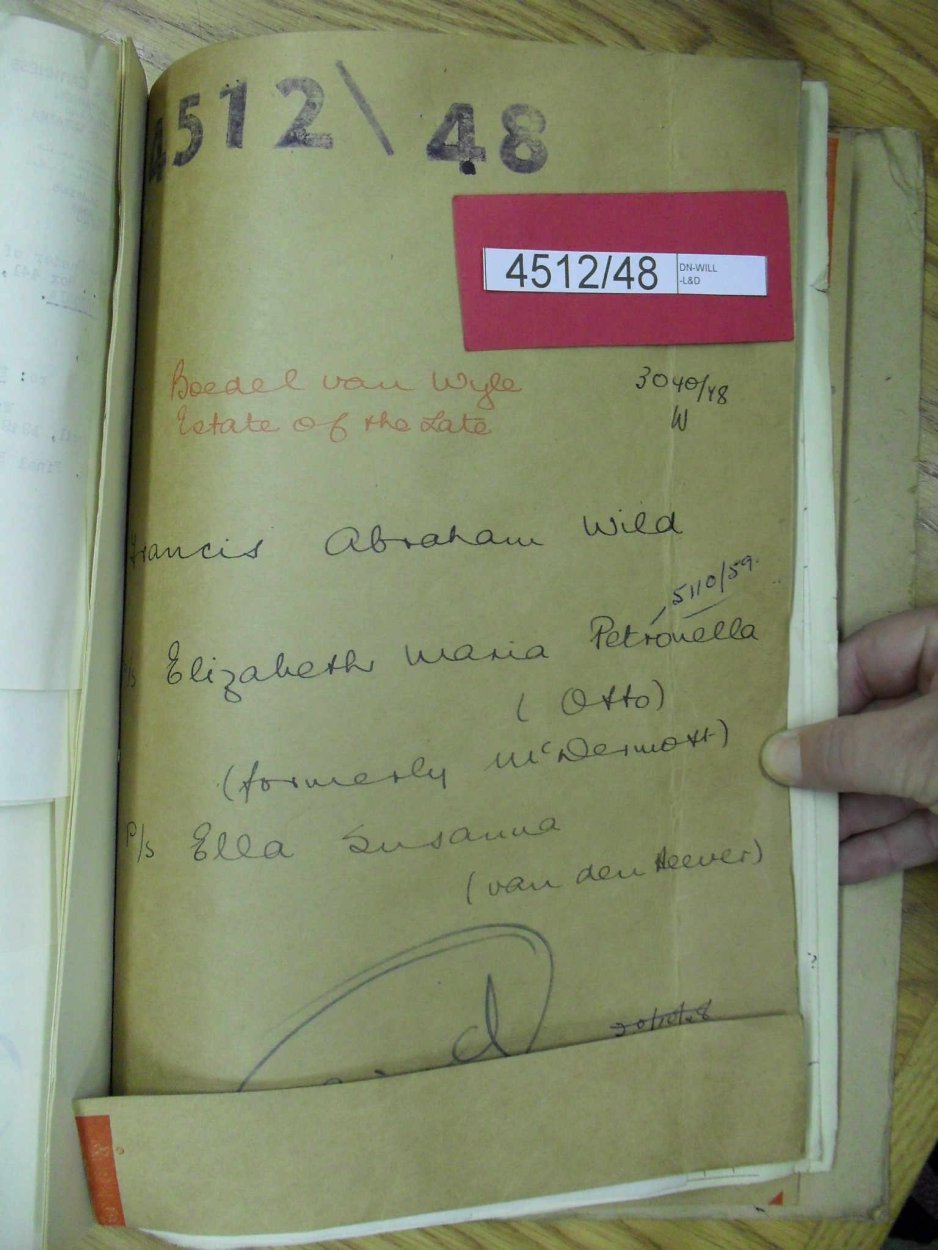 4512\48
4512/48
DN-WILL
-L&D
Boedel van Wyle
Estate of the Late
3040/48
W
Francis Abraham Wild
5110/59.
s/s Elizabeth Maria Petronella
(Otto)
(formerly McDermott)
P/s Ella Susanna
(van den Heever)